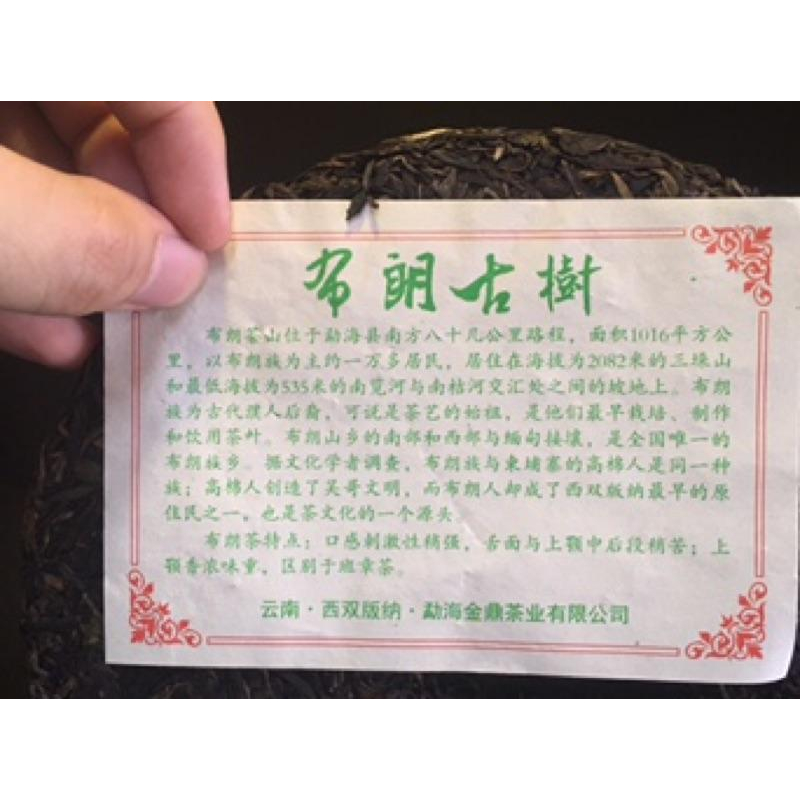 布朗古樹
布朗茶山位于勐海县南方八十几公里路程，面积1016平方公
里，以布朗族为主约一万多居民，居住在海拔为2082米的三垛山
和最低海拔为535米的南览河与南桔河交汇处之间的坡地上。布朗
族为古代濮人后裔，可说是茶艺的始祖，是他们最早栽培、制作
和饮用茶叶。布朗山乡的南部和西部与缅甸接壤，是全国唯一的
布朗族乡。据文化学者调查，布朗族与柬埔寨的高棉人是同一种
族；高棉人创造了吴哥文明，而布朗人却成了西双版纳最早的原
住民之一，也是茶文化的一个源头。
布朗茶特点：口感刺激性稍强，舌面与上颚中后段稍苦；上
颚香浓味重，区别于班章茶。
云南·西双版纳·勐海金鼎茶业有限公司